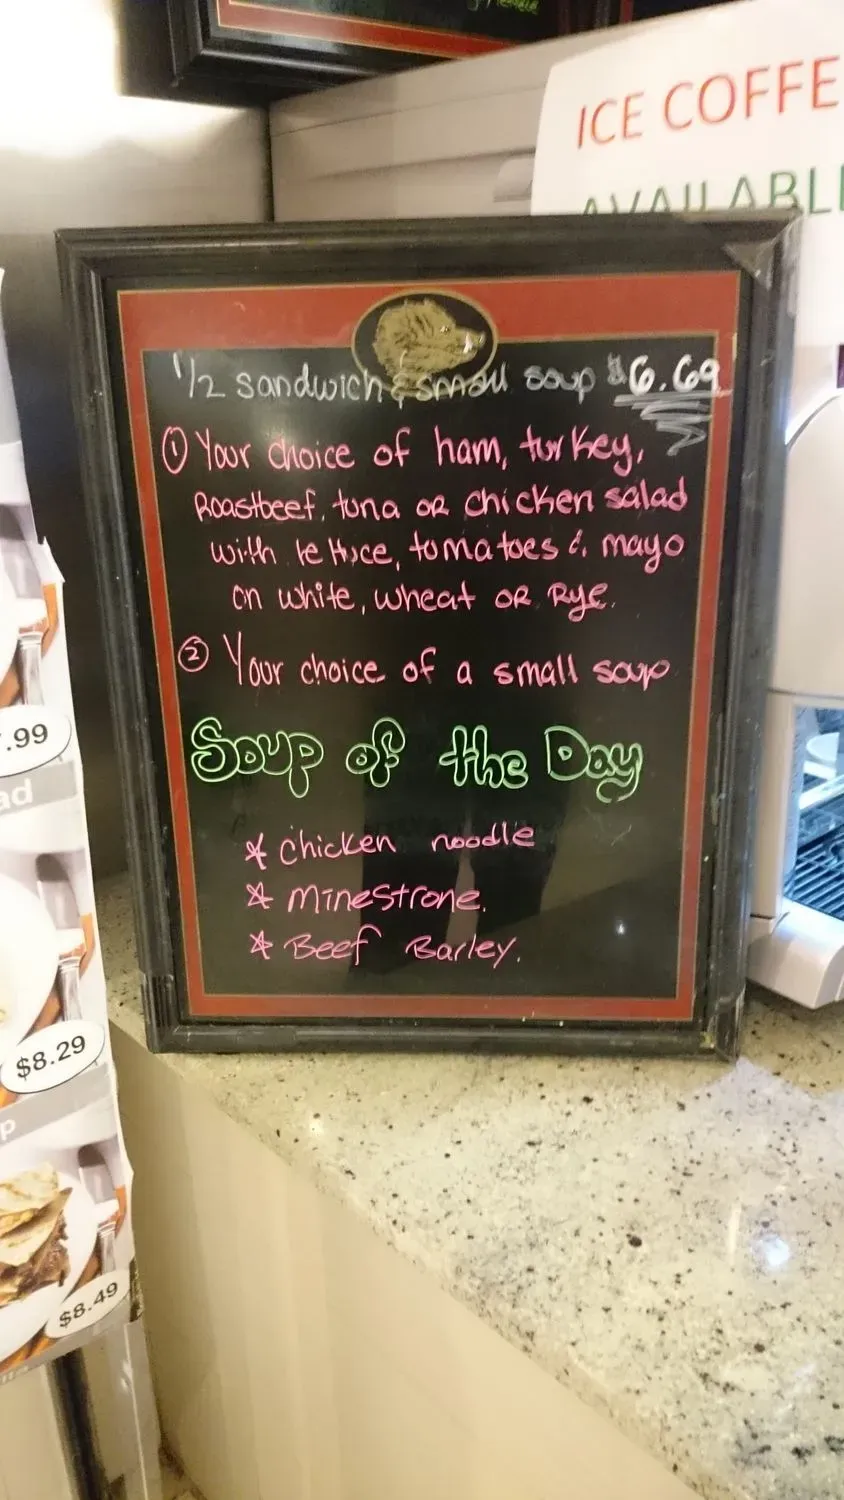 ICE COFFE
AVAILABL
1/2 sandwich & small soup $6.69
① Your choice of ham, turkey,
Roastbeef, tuna or chicken salad
with lettuce, tomatoes & mayo
on white, wheat or Rye.
② Your choice of a small soup
Soup of the Day
* chicken noodle
* Minestrone.
* Beef Barley.
.99
ad
$8.29
p
$8.49